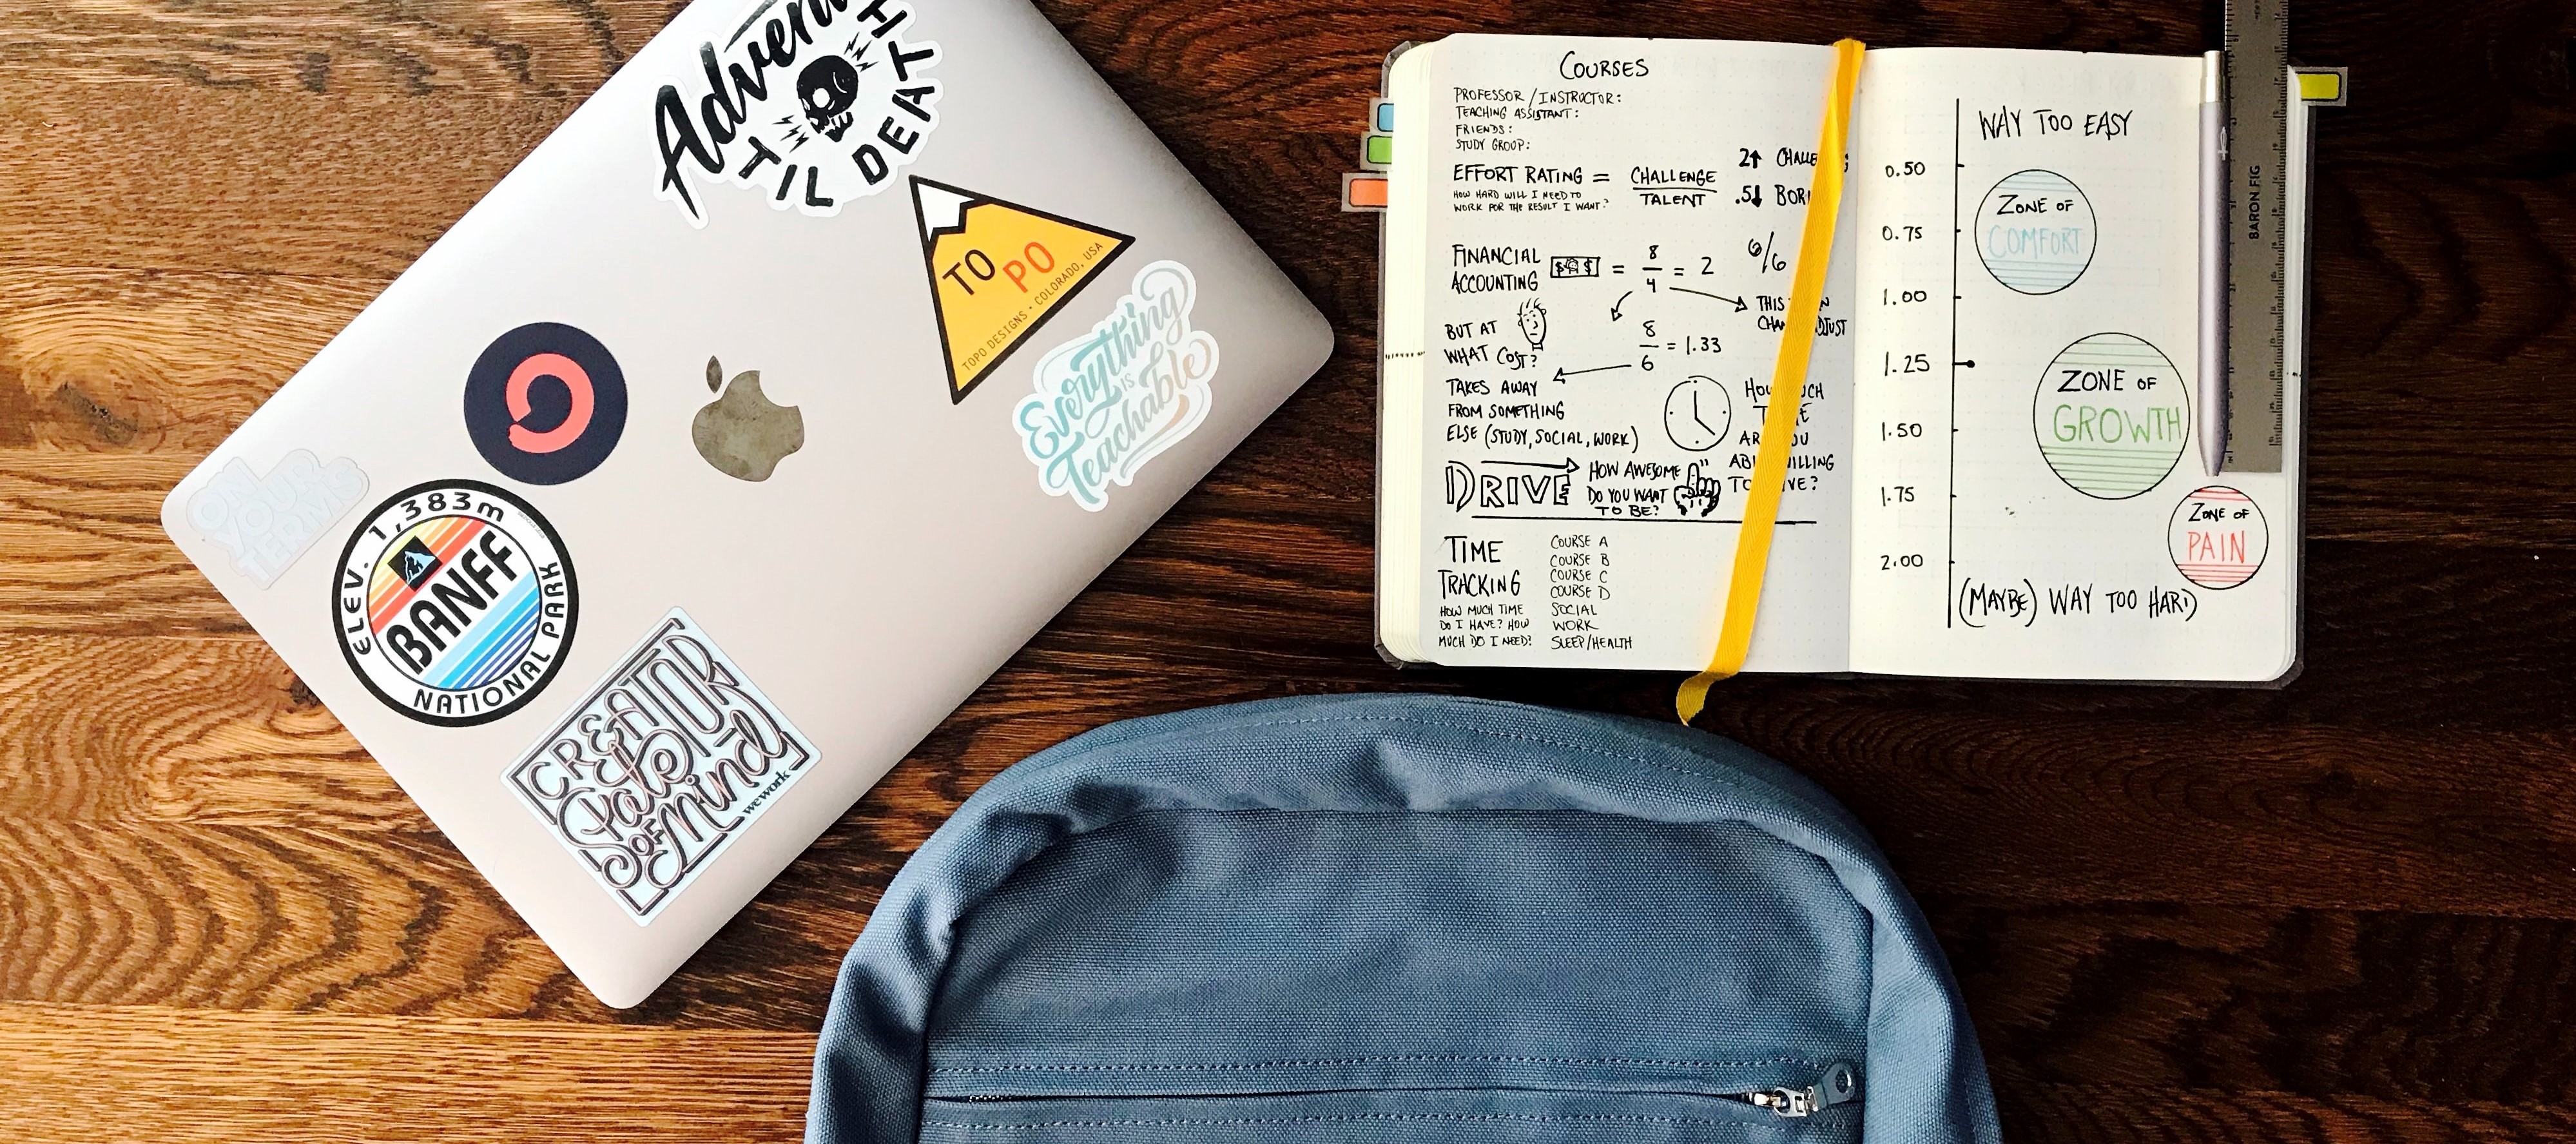 Adven
TIL DEATH
TO
PO
TOPO DESIGNS • COLORADO, USA
Everything
IS
Teachable
ON
YOUR
TERMS
ELEV. 1,383m
BANFF
NATIONAL PARK
CREATOR
State
OF
Mind
wework
COURSES
PROFESSOR / INSTRUCTOR:
TEACHING ASSISTANT:
FRIENDS:
STUDY GROUP:
EFFORT RATING = CHALLENGE
TALENT
HOW HARD WILL I NEED TO
WORK FOR THE RESULT I WANT?
2↑ CHALLE
.5↓ BOR
FINANCIAL
ACCOUNTING $ $ = 8/4 = 2
6/6
BUT AT
WHAT COST?
8/6 = 1.33
THIS
TAKES AWAY
FROM SOMETHING
ELSE (STUDY, SOCIAL, WORK)
DRIVE
HOW AWESOME
DO YOU WANT
TO BE?
TIME
TRACKING
HOW MUCH TIME
DO I HAVE? HOW
MUCH DO I NEED?
COURSE A
COURSE B
COURSE C
COURSE D
SOCIAL
WORK
SLEEP/HEALTH
WAY TOO EASY
0.50
ZONE OF
COMFORT
0.75
1.00
1.25
ZONE OF
GROWTH
1.50
1.75
ZONE OF
PAIN
2.00
(MAYBE) WAY TOO HARD
BARON FIG